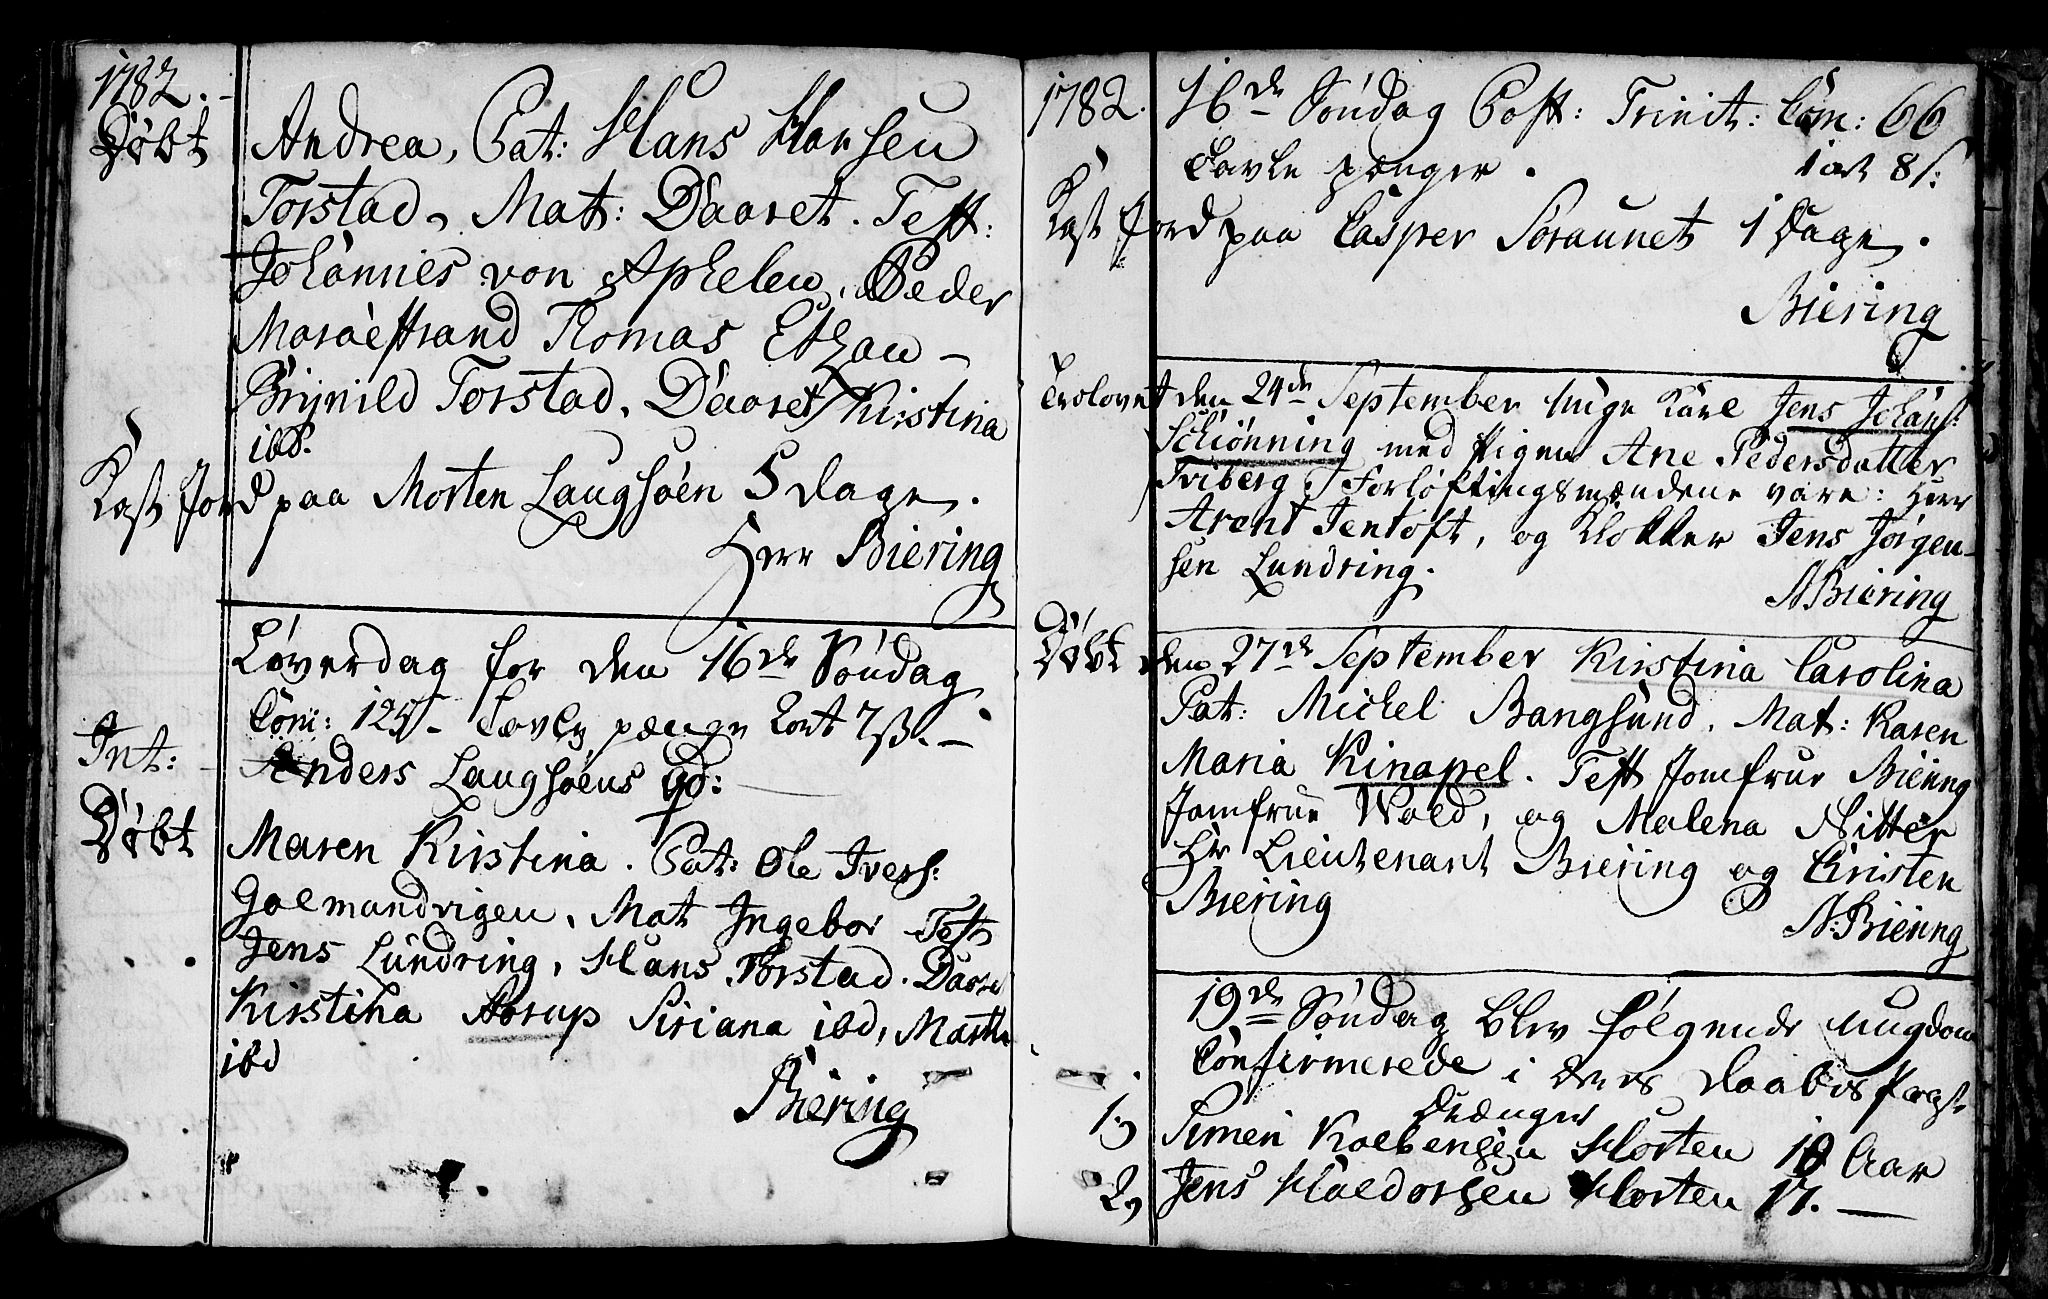 1782.
Döbt
Andrea, Pat: Hans Hansen
Torstad, Mat: Daaret. Test:
Johannes von Aphelen, Peder
Maraestrand Thomas
Brynild Torstad, Daaret, Kirstina
ibd.
Kast Jord paa Morten Laugsöen 5 dage.
Herr Biering
Löverdag for den 16de Söndag
Com: 125. Tavle penge 7 ß.
Int: Anders Laugsöens
Döbt
Maren Kirstina. Pat: Ole Ivers:
Mat Ingebor Test
Jens Lundring, Hans Torstad. Daaret
Kirstina Aarup Siriana ibd, Martha
ibd
Biering
1782.
16de Söndag Post: Trinit: Com: 66
Tavle penger. 1 ort 8 s:
Kast Jord paa Casper Soraunet 1 Dage.
Biering
Trolovet den 24de September unge Karl Jens Johans:
Schiönning med Pigen Ane Pedersdatter
Tviberg. Forlöftingsmændene vare: Herr
Arent Jentoft, og Klokker Jens Jörgen-
sen Lundring.
N Biering
Döbt den 27de September Kirstina Carolina
Pat: Michel Bangsund. Mat: Karen
Maria Kinapel. Test Jomfrue Biering
Jomfrue Wold, og Malena Nitter
Hr Lieutenant Biering og Christen
Biering
N: Biering
19de Söndag blev fölgende ungdom
Confirmerede i deres Daabes pagt
Drænger
1) Simen Kolbensen Horten 18 Aar
2) Jens Haldorsen Horten 17.